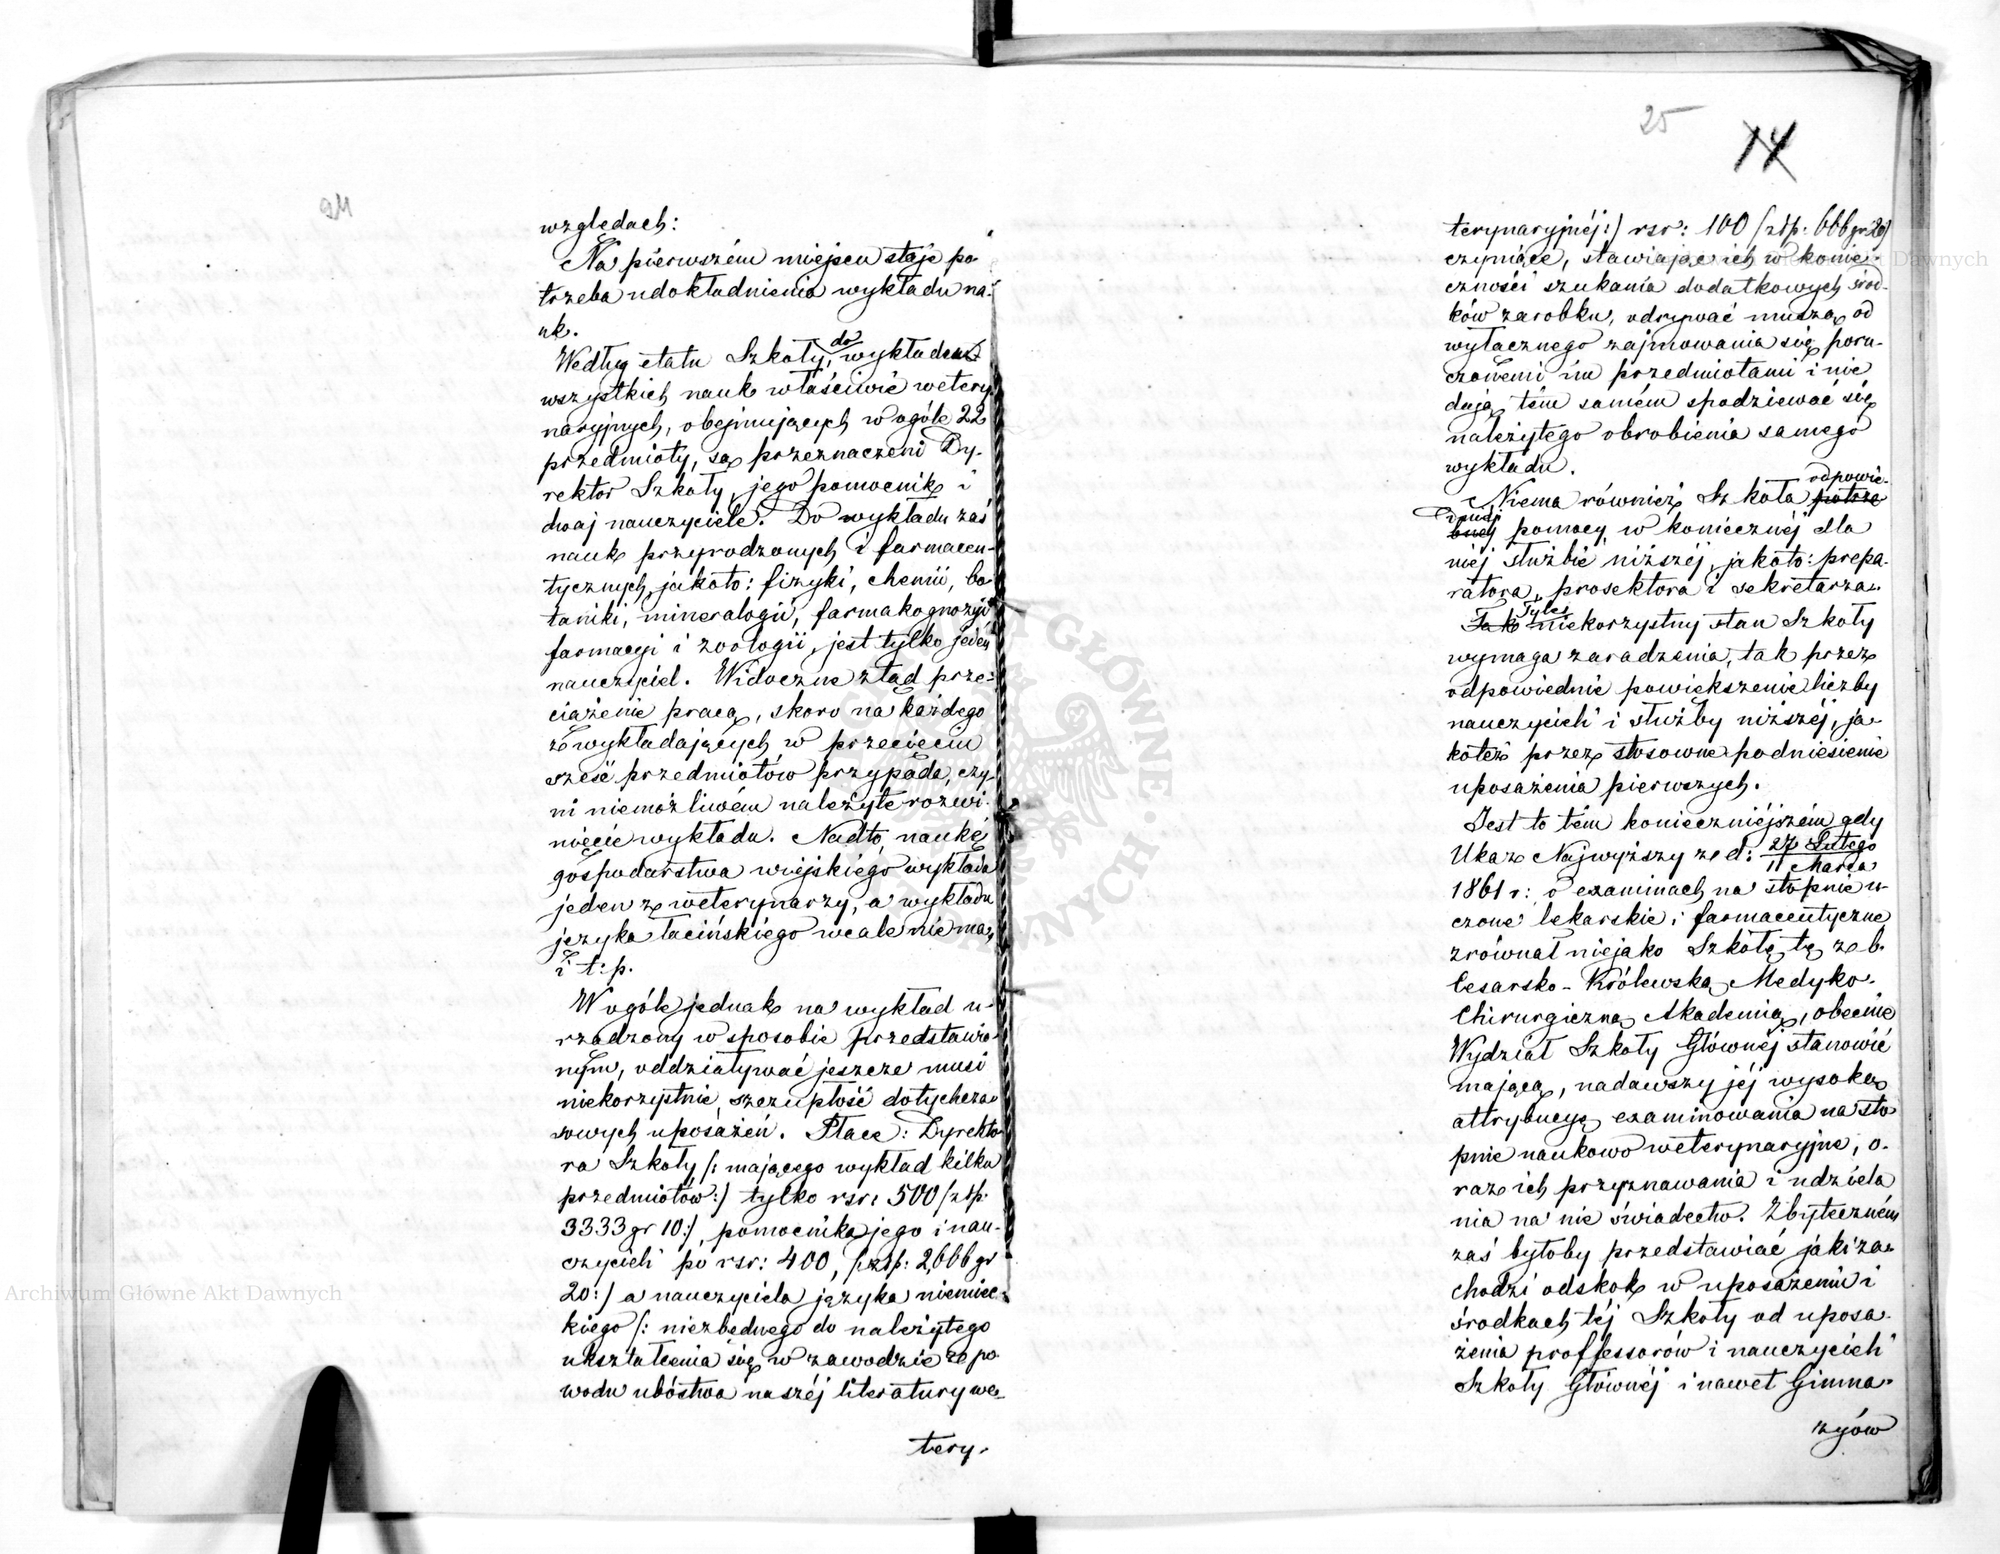 24
względach:
Na pierwszém miejscu staje po-
trzeba udokładnienia wykładu na-
uk.
Według etatu Szkoły, do wykładu
wszystkich nauk właściwie wetery-
naryjnych, obejmujących w ogóle 22
przedmioty, są przeznaczeni Dy-
rektor Szkoły, jego pomocnik i
dwaj nauczyciele. Do wykładu zaś
nauk przyrodzonych i farmaceu-
tycznych, jakoto: fizyki, chemii, bo-
taniki, mineralogii, farmakognozyi,
farmacyi i zoologii, jest tylko jeden
nauczyciel. Widoczne ztąd prze-
ciążenie pracą, skoro na każdego
z wykładających w przecięciu
sześć przedmiotów przypada, czy-
ni niemożliwém należyte rozwi-
nięcie wykładu. Nadto, naukę
gospodarstwa wiejskiego wykłada
jeden z weterynarzy, a wykładu
języka łacińskiego wcale niema,
i t: p.
W ogóle jednak na wykład u-
rządzony w sposobie przedstawio-
nym, oddziaływać jeszcze musi
niekorzystnie, szczupłość dotychcza-
sowych uposażeń. Płace: Dyrekto-
ra Szkoły /: mającego wykład kilku
przedmiotów :/ tylko rsr: 500 /złp:
3333 gr 10:/, pomocnika jego i nau-
czycieli po rsr: 400, /: złp: 2,666 gr
20:/ a nauczyciela języka niemiec-
kiego /: niezbędnego do należytego
ukształcenia się w zawodzie z po-
wodu ubóstwa naszéj literatury we-
tery-
25
14
terynaryjnéj:/ rsr: 100 /złp: 666 gr 20/
czyniące, stawiając ich w konie-
czności szukania dodatkowych środ-
ków zarobku, odrywać muszą od
wyłącznego zajmowania się poru-
czonemi im przedmiotami i nie
dają tém samém spodziewać się
należytego obrobienia samego
wykładu.
odpowie-
Niema również Szkoła potrze
dniej
bnej pomocy, w koniecznéj dla
niéj służbie niższéj, jakoto: prepa-
ratora, prosektora i sekretarza.
Tyle
Tak niekorzystny stan Szkoły
wymaga zaradzenia, tak przez
odpowiednie powiększenie liczby
nauczycieli i służby niższéj, ja-
kotéż przez stosowne podniesienie
uposażenia pierwszych.
Jest to tém konieczniéjszém gdy
Ukaz Najwyższy z d: 27 Lutego
11 Marca
1861 r: o examinach na stopnie u-
czone lekarskie i farmaceutyczne
zrównał niejako Szkołę tę z b.
Cesarsko-Królewską Medyko-
Chirurgiczną Akademią, obecnie
Wydział Szkoły Głównéj stanowić
mającą, nadawszy jéj wysoką
attrybucyę examinowania na sto-
pnie naukowo weterynaryjne, o-
raz ich przyznawania i udziela
nia na nie świadectw. Zbyteczném
zaś byłoby przedstawiać jaki za-
chodzi odskok w uposażeniu i
środkach téj Szkoły od uposa-
żenia proffessorów i nauczycieli
Szkoły Głównéj i nawet Gimna-
zyów
Archiwum Główne Akt Dawnych